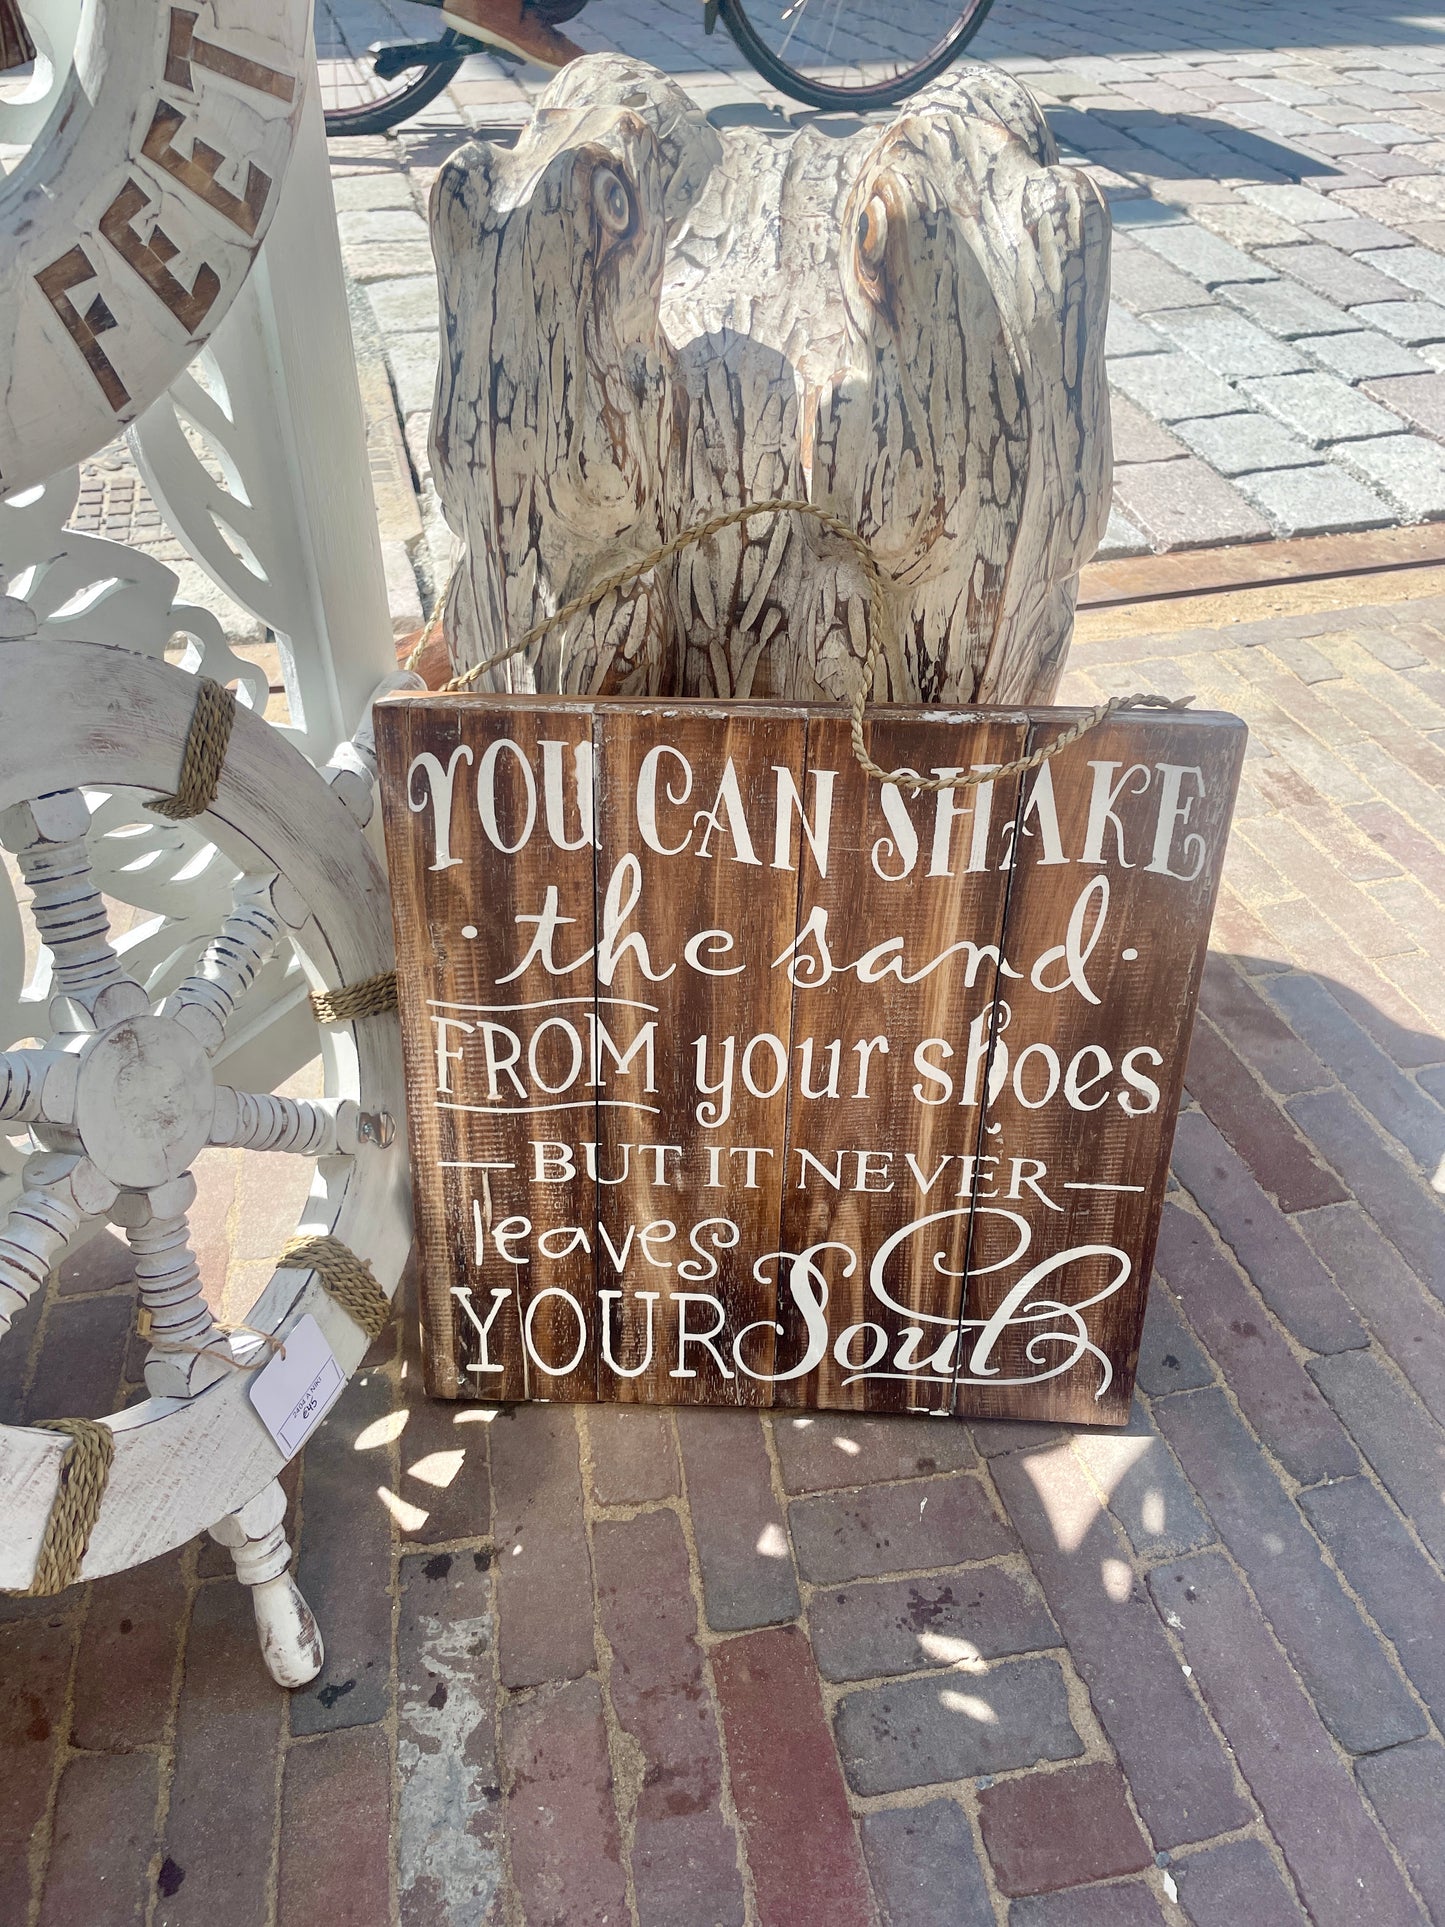 FEET
YOU CAN SHAKE
· the sand ·
FROM your shoes
— BUT IT NEVER —
leaves
YOUR Soul
€45